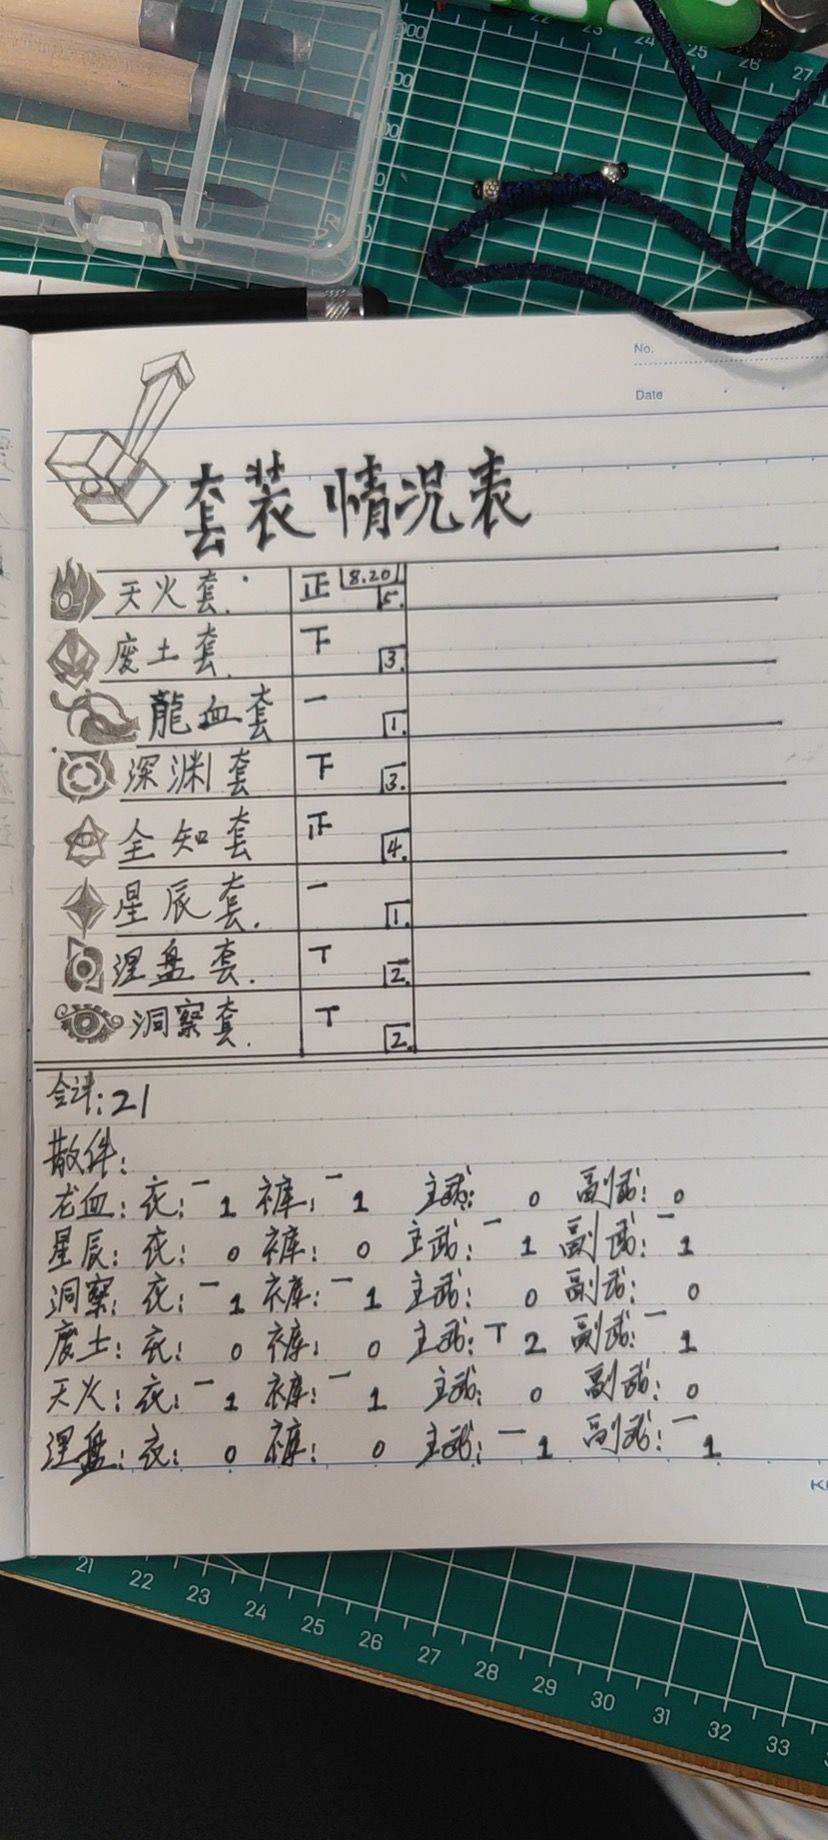 22 23 24 25 26 27
No.
Date
套装情况表
天火套. 正 8.20 5.
废土套. 下 3.
龍血套 一 1.
深渊套 下 3.
全知套 4.
星辰套. 一 1.
涅盘套. T 2.
洞察套. T 2.
合计:21
散件:
龙血:衣:一 1 裤:一 1 主武: 0 副武: 0
星辰:衣: 0 裤: 0 主武:一 1 副武:一 1
洞察:衣:一 1 裤:一 1 主武: 0 副武: 0
废土:衣: 0 裤: 0 主武:T 2 副武:一 1
天火:衣:一 1 裤:一 1 主武: 0 副武: 0
涅盘:衣: 0 裤: 0 主武:一 1 副武:一 1
21 22 23 24 25 26 27 28 29 30 31 32 33